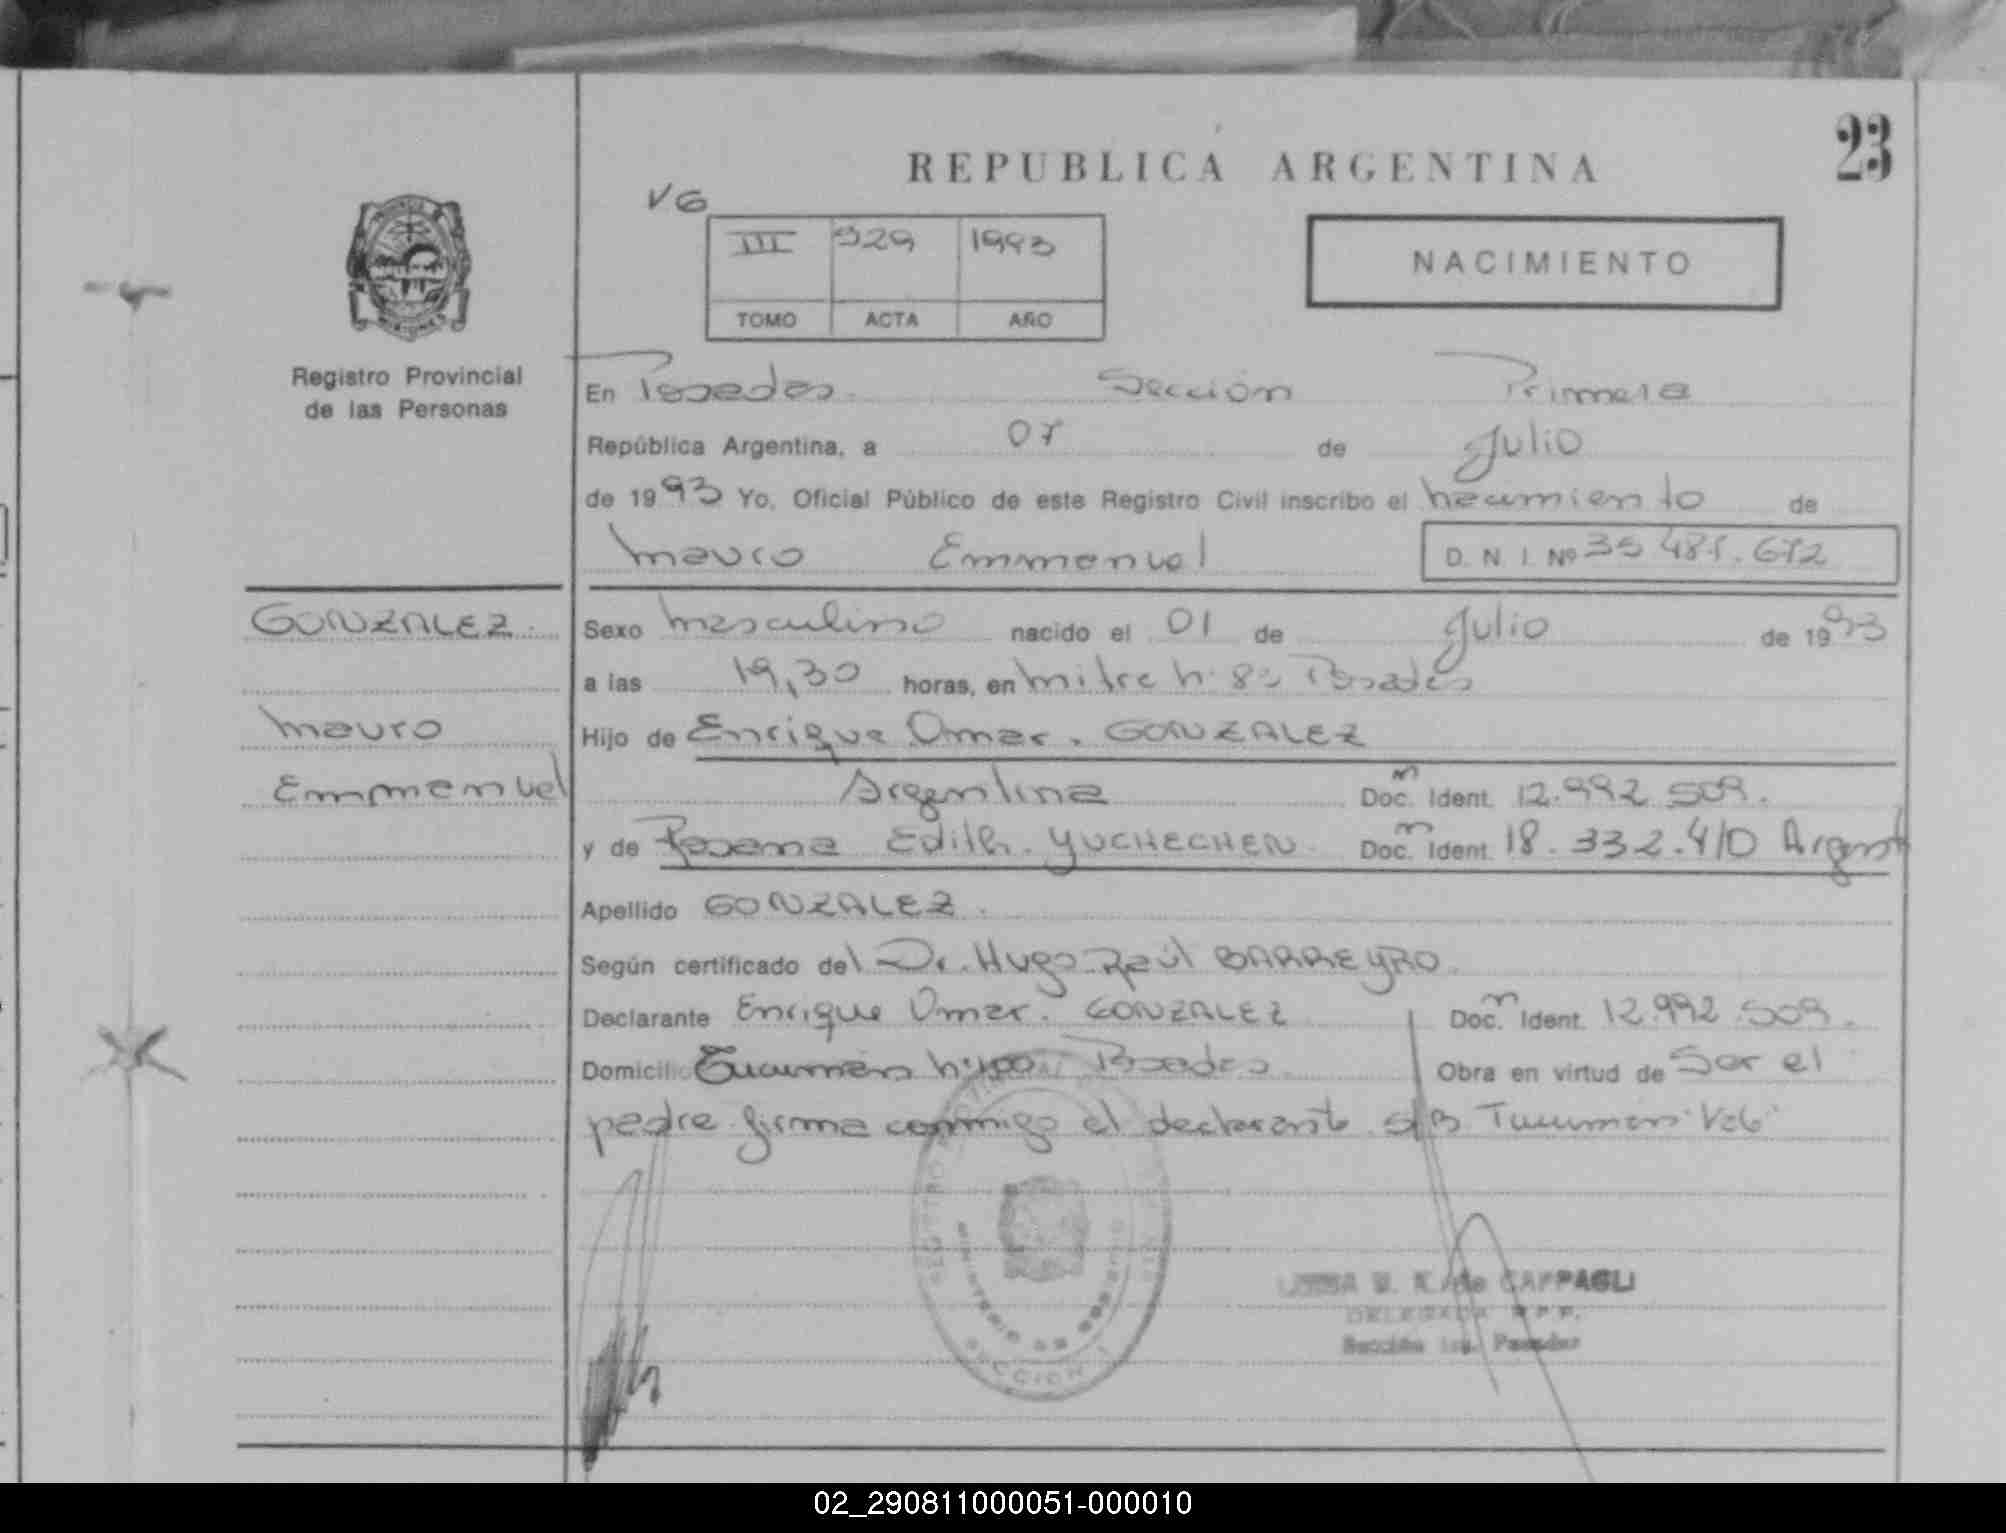 23
REPUBLICA ARGENTINA
VG
III 929 1993
TOMO ACTA AÑO
NACIMIENTO
Registro Provincial
de las Personas
En Posadas. Sección Primera
República Argentina, a 07 de Julio
de 1993 Yo, Oficial Público de este Registro Civil inscribo el nacimiento de
Mauro Emmanuel D. N. I. Nº
GONZALEZ.
Mauro
Emmanuel
Sexo masculino nacido el 01 de Julio de 1993
a las 19,30 horas, en mitre Posadas
Hijo de Enrique Omar. GONZALEZ
Argentina Doc. Ident. 12.992.509.
y de Edith. YUCHECHEN Doc. Ident. 18.332.410
Apellido GONZALEZ.
Según certificado del Dr. Hugo Raúl BARREYRO.
Declarante Enrique Omar. GONZALEZ Doc. Ident. 12.992.509.
Domicilio Tucumán Posadas Obra en virtud de Ser el
padre firma conmigo el declarante s/B Tucumán
CAPPAGLI
DELEGADA R.P.P.
Sección 1ra. Posadas
SECCION 1
02_290811000051-000010